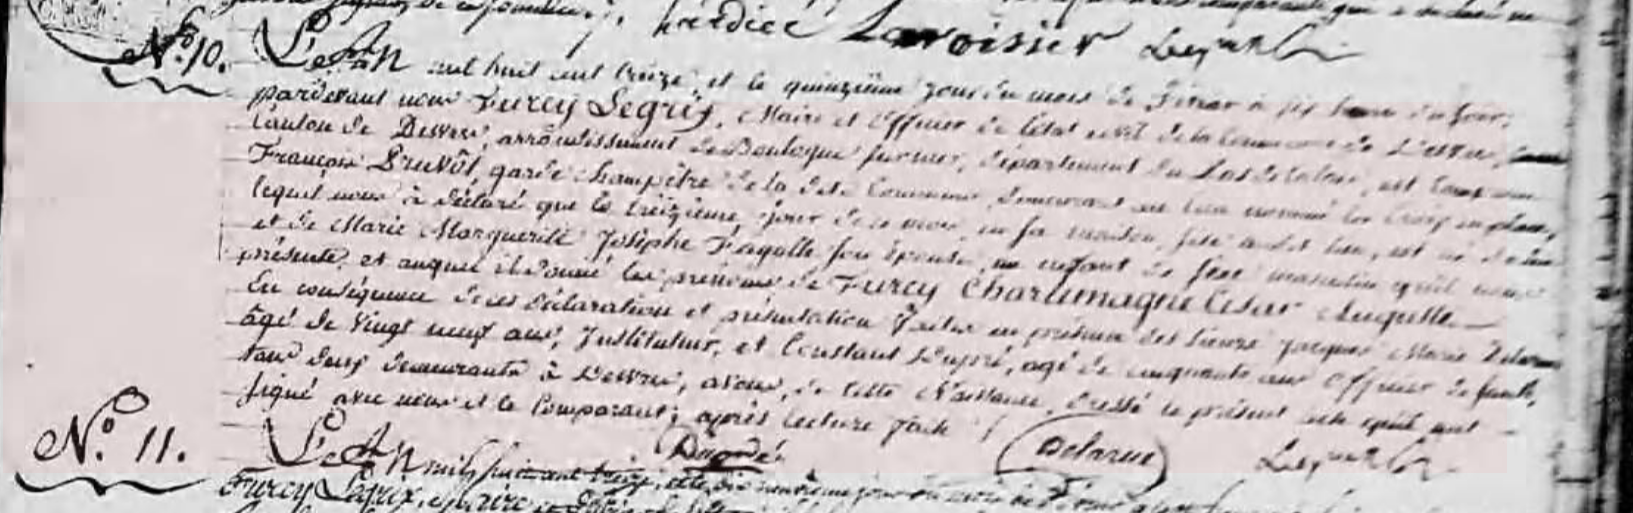 hérédier Lavoisier Legrix
N.º 10. L'An mil huit cent treize, et le quinzieme jour du mois de février à six heures du soir,
pardevant nous Furcy Legrix, Maire et Officier de l'état civil de la Commune de Desvres,
Canton de Desvres, arrondissement de Boulogne sur mer, département du Pas de Calais, est comparu
François Pruvôt, garde champêtre de la dite Commune, demeurant au lieu nommé les
lequel nous à déclaré que le treizieme jour de ce mois, en sa maison, audit lieu, est né de lui
et de Marie Marguerite Josephe Fagotte son épouse, un enfant de sexe masculin qu'il nous
présente, et auquel il donné les prénoms de Furcy Charlemagne César Auguste
En conséquence de ces déclaration et présentation faites en présence des sieurs Jacques Marie Delarue
âgé de vingt neuf ans, Instituteur, et Constant Dupré, agé de cinquante ans Officier de santé,
tous deux demeurants à Desvres, avons, de cette Naissance, dressé le présent acte qu'ils ont
signé avec nous et le Comparant, après lecture faite
Delarue Legrix
N.º 11. L'An mil huit cent treize, et le dix neuvieme jour du mois de février
Furcy Legrix, Maire